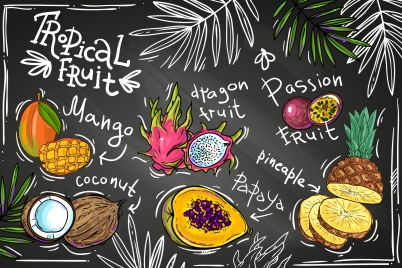 TROPICAL
FRUIT
Mango
dragon
fruit
Passion
fruit
coconut
Papaya
pineapple